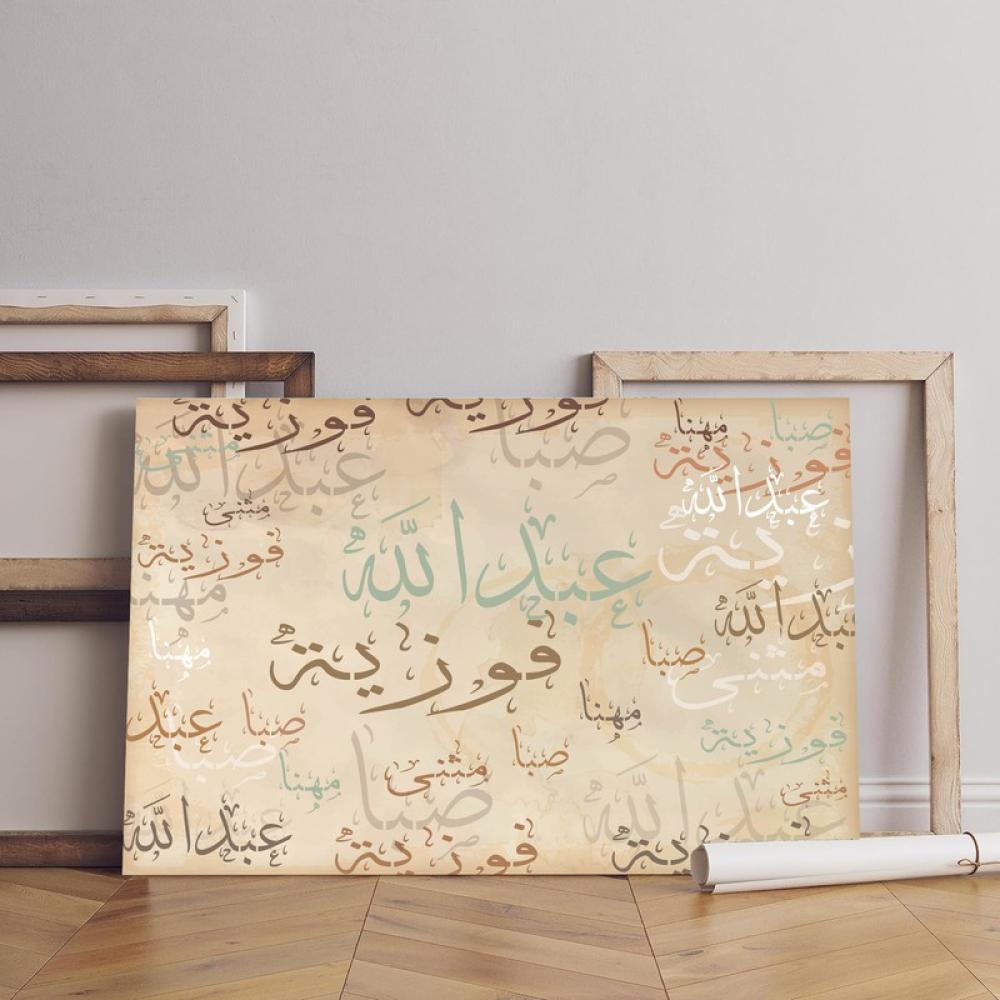 فوزية
فوزية
صبا
مهنا
صبا
مثنى
عبدالله
فوزية
عبدالله
مثنى
ية
فوزية
عبدالله
عبدالله
مهنا
فوزية
صبا
مثنى
مهنا
مهنا
عبد
صبا
فوزية
صبا
صبا
مثنى
مهنا
مثنى
صبا
عبدالله
عبدالله
فوزية
ية